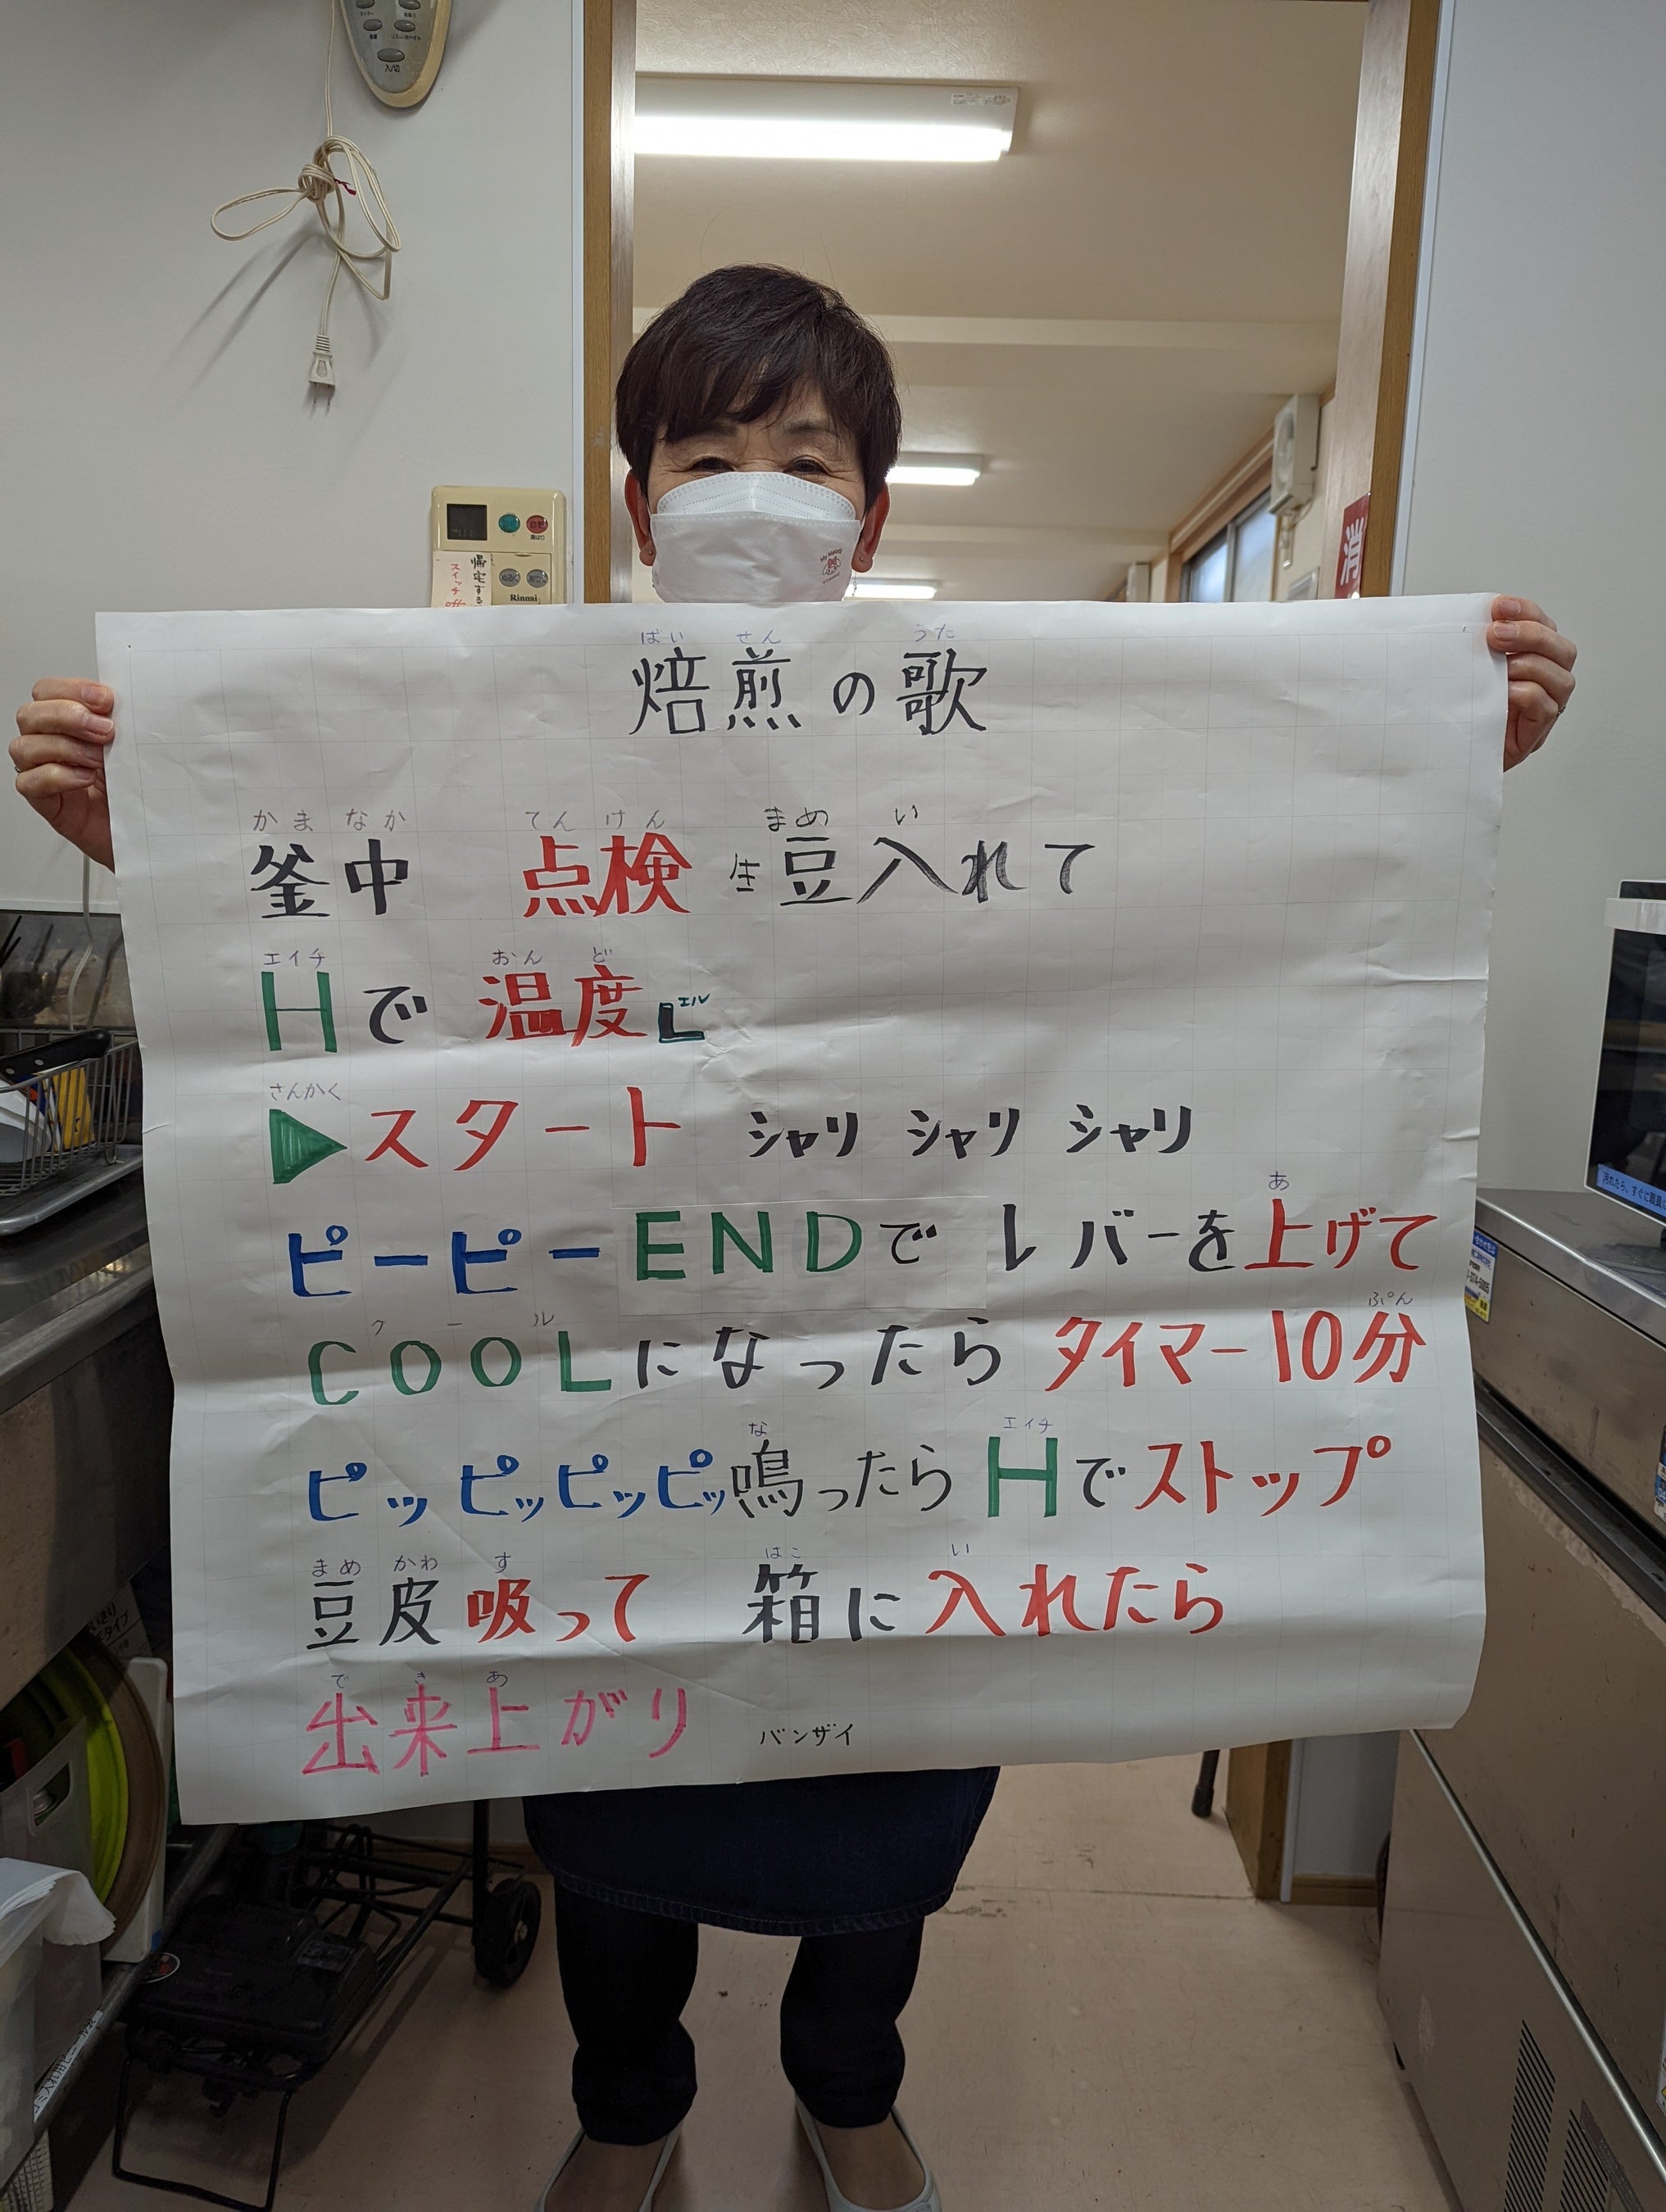 入/切
帰宅する
スイッチ
off
Rinnai
消
ばい せん うた
焙煎の歌
かま なか てん けん まめ い
釜中 点検 生豆入れて
エイチ おん ど エル
Hで 温度L
さんかく
▶スタート シャリ シャリ シャリ
あ
ピーピーENDで レバーを上げて
クール ぷん
COOLになったら タイマー10分
な エイチ
ピッピッピッピッ鳴ったら Hでストップ
まめ かわ す はこ い
豆皮吸って 箱に入れたら
で き あ
出来上がり バンザイ
汚れたら、すぐに職員に